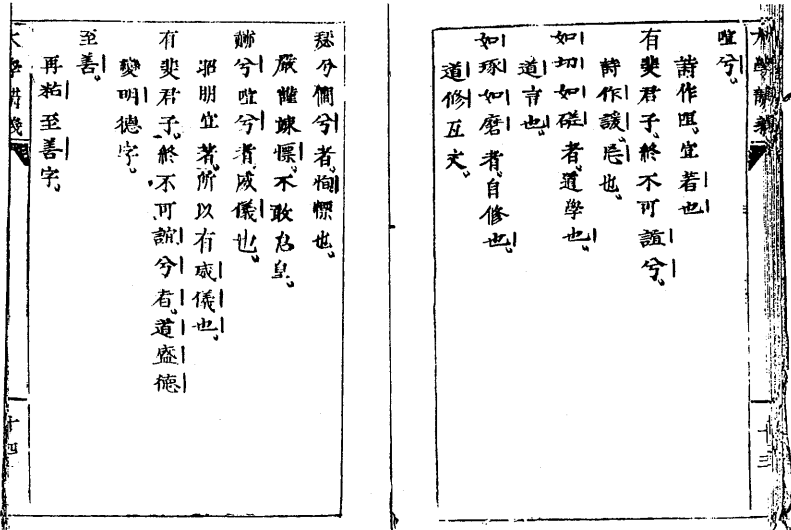 喧兮、
詩作咺、宜著也
有斐君子、終不可諠兮、
詩作諼、忘也、
如切如磋者、道學也、
道言也、
如琢如磨者、自修也、
道修互文、
十三
瑟兮僩兮者、恂慄也、
嚴謹竦慄、不敢怠皇、
赫兮喧兮者、威儀也、
昭明宜著、所以有威儀也、
有斐君子、終不可諠兮者、道盛德
變明德字、
至善、
再粘至善字、
十四